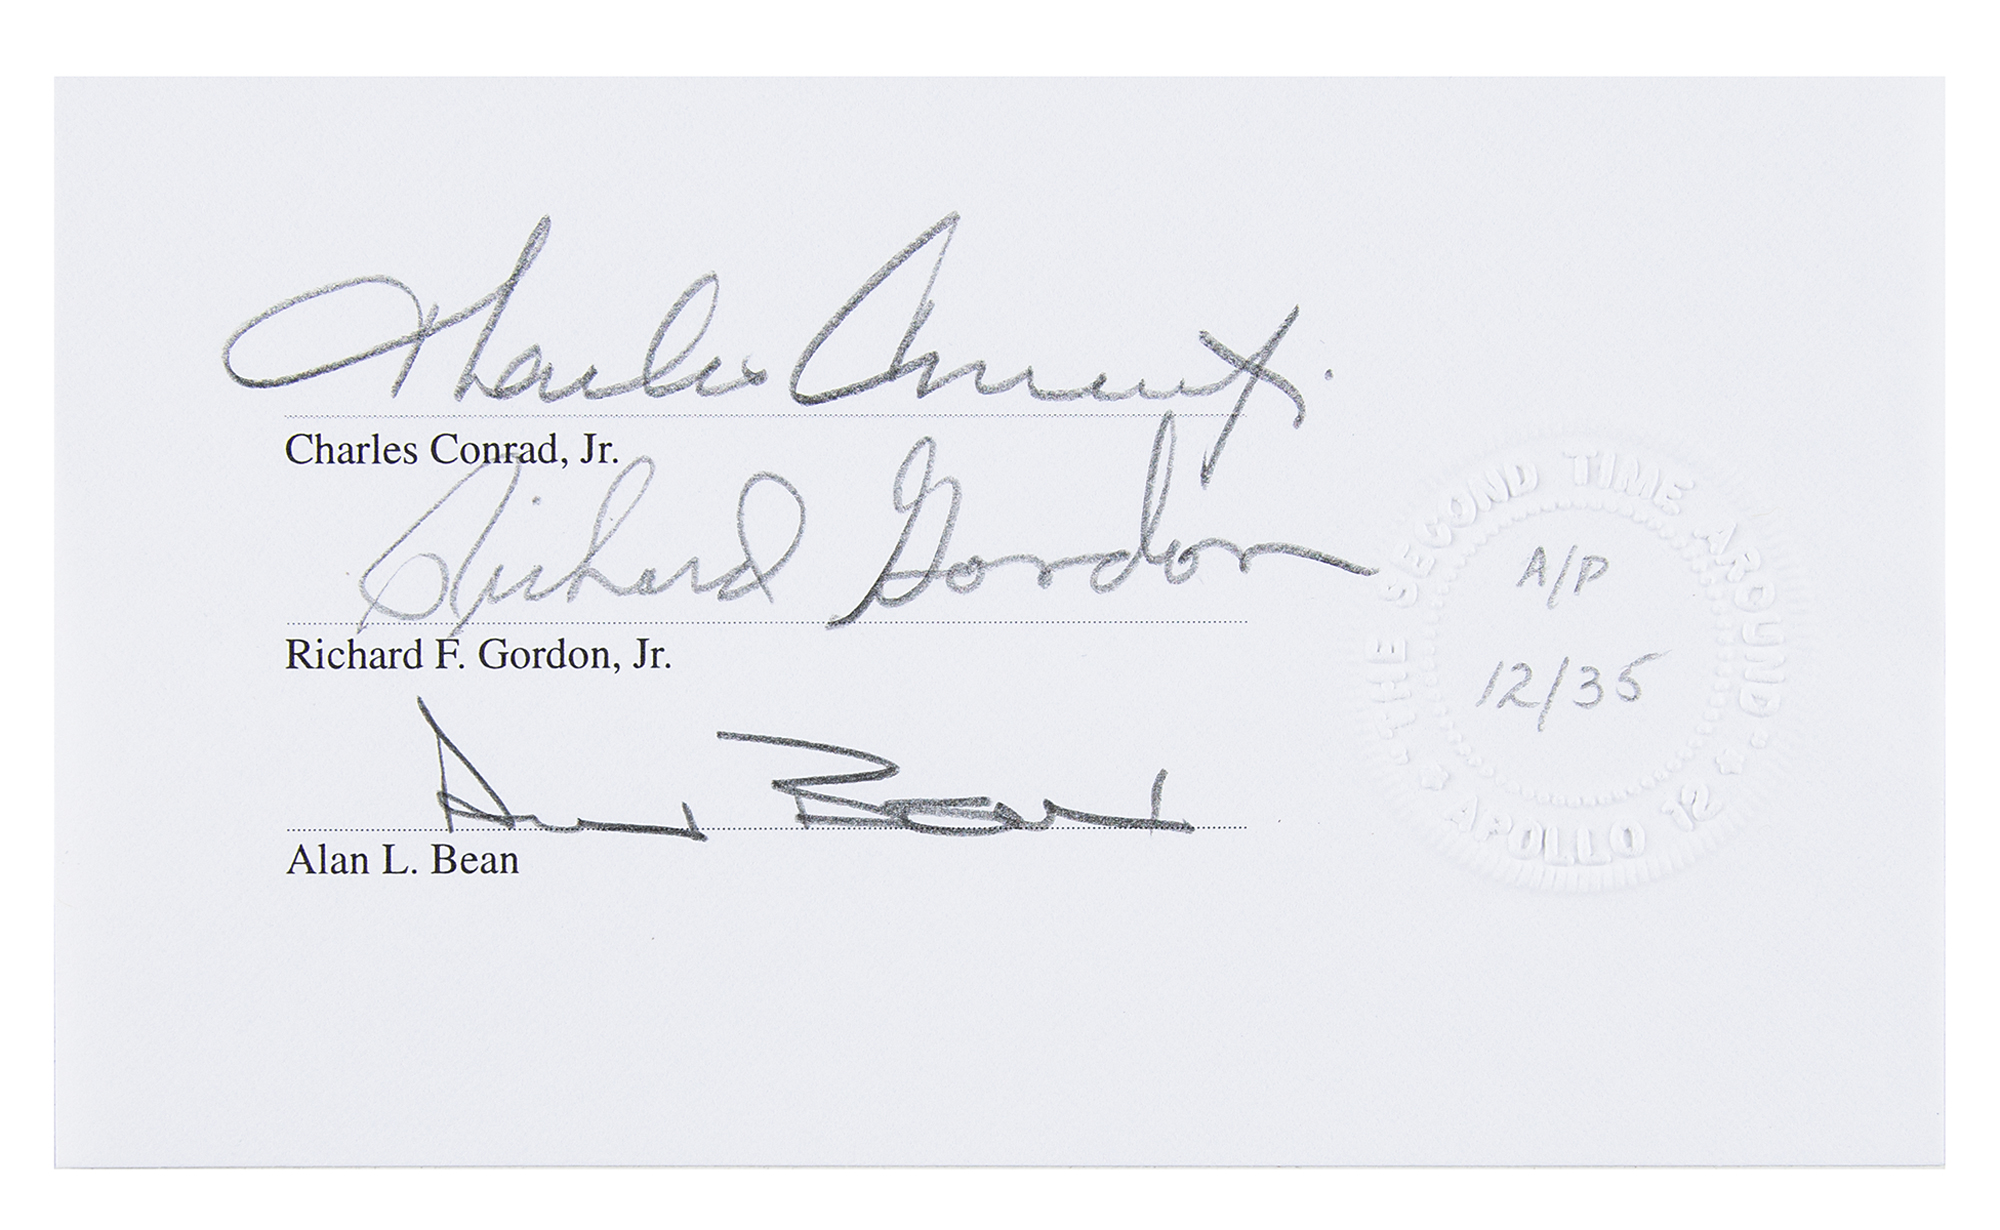 Charles Conrad Jr.
Charles Conrad, Jr.
Richard Gordon
Richard F. Gordon, Jr.
Alan Bean
Alan L. Bean
"THE SECOND TIME AROUND"
A/P
12/35
APOLLO 12